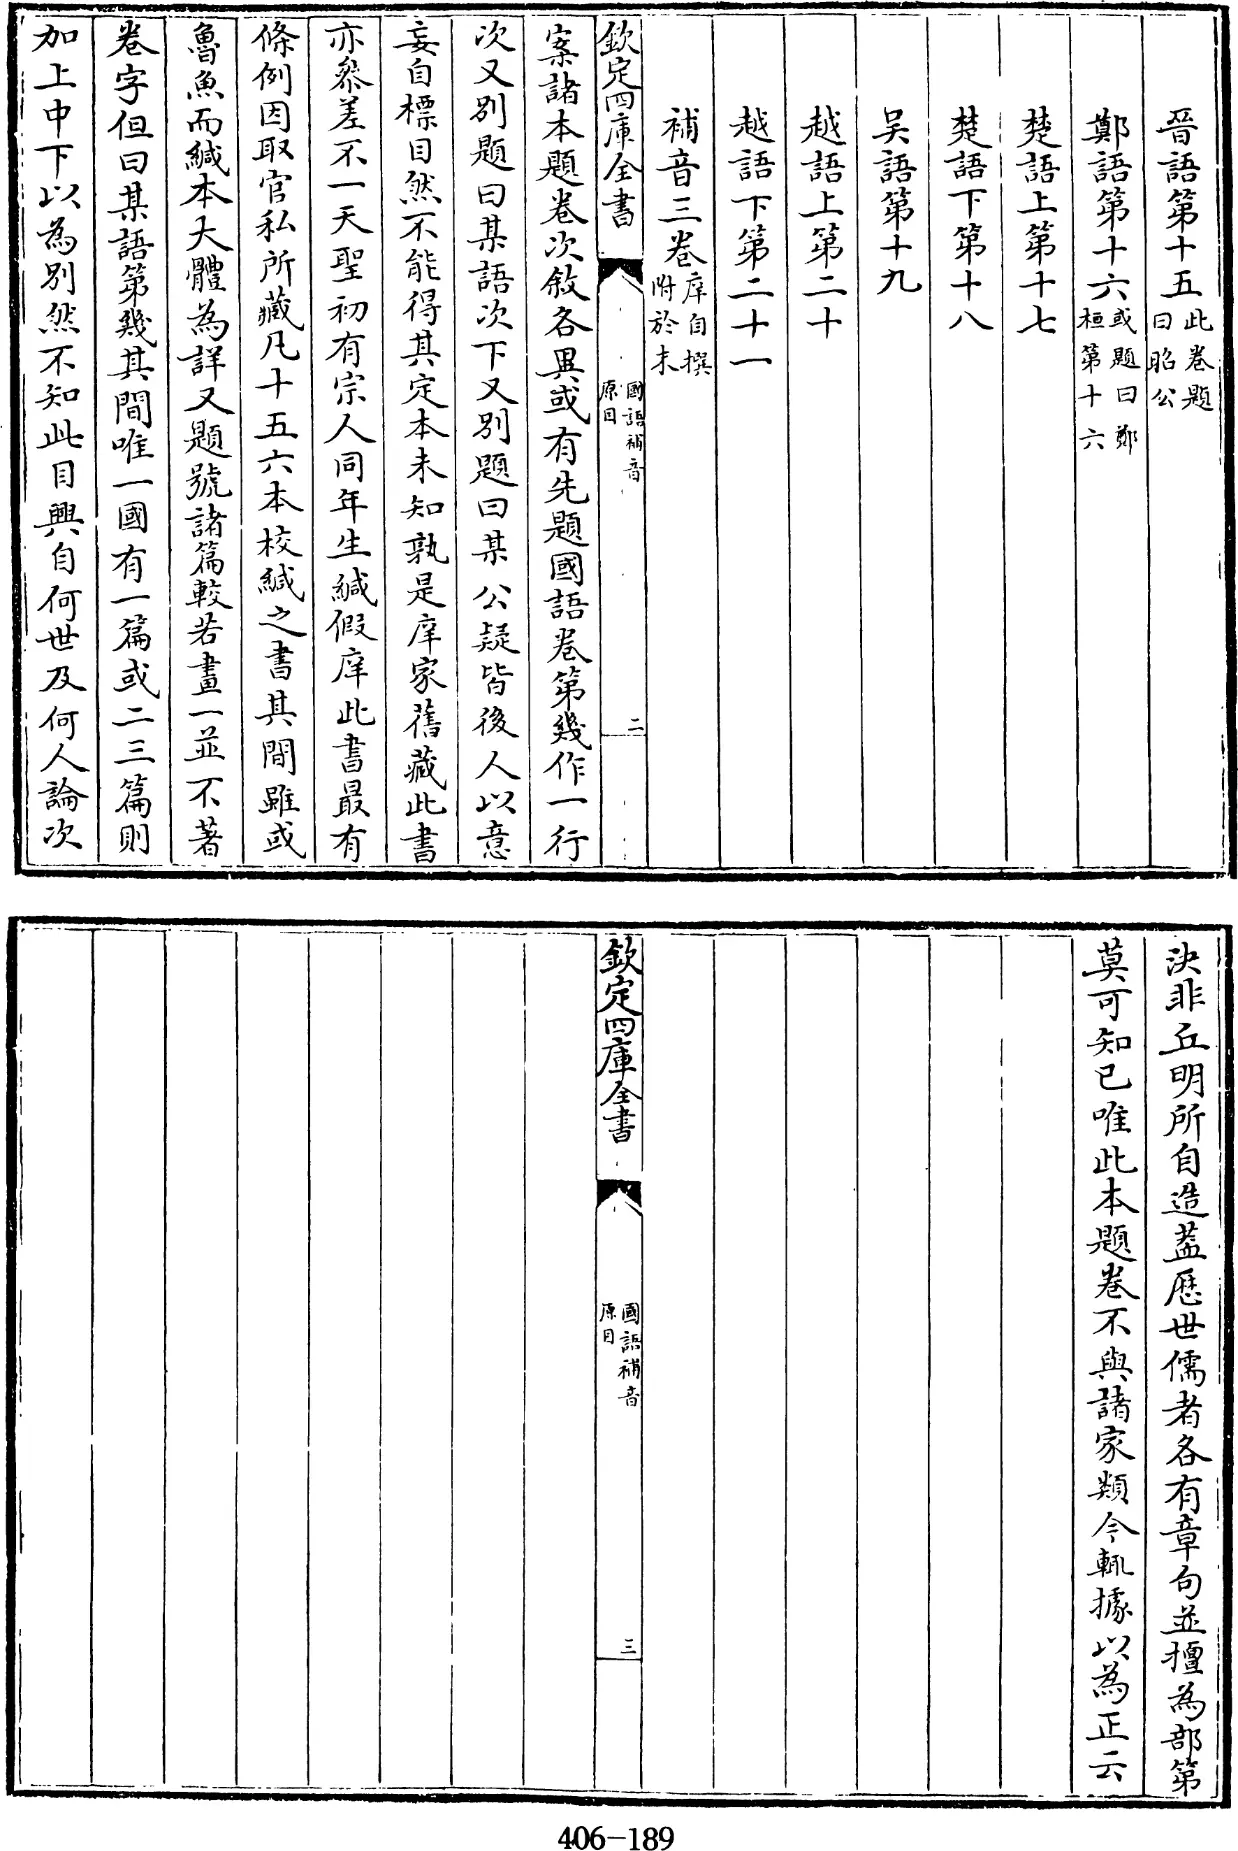 晉語第十五此卷題曰昭公
鄭語第十六或題曰鄭桓第十六
楚語上第十七
楚語下第十八
吳語第十九
越語上第二十
越語下第二十一
補音三卷庠自撰附於末
欽定四庫全書 國語補音原目 二
案諸本題卷次敘各異或有先題國語卷第幾作一行
次又別題曰某語次下又別題曰某公疑皆後人以意
妄自標目然不能得其定本未知孰是庠家舊藏此書
亦參差不一天聖初有宗人同年生緘假庠此書最有
條例因取官私所藏凡十五六本校緘之書其間雖或
魯魚而緘本大體為詳又題號諸篇較若畫一並不著
卷字但曰某語第幾其間唯一國有一篇或二三篇則
加上中下以為別然不知此目興自何世及何人論次
決非丘明所自造蓋歷世儒者各有章句並擅為部第
莫可知已唯此本題卷不與諸家類今輒據以為正云
欽定四庫全書 國語補音原目 三
406-189